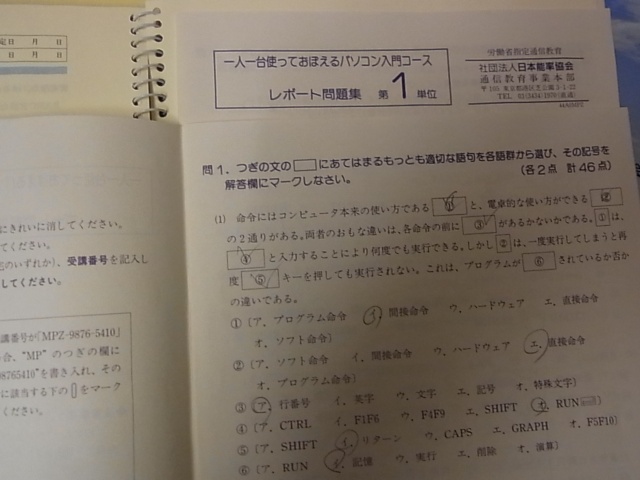 定日 月 日
月 日
一人一台使っておぼえるパソコン入門コース
レポート問題集 第1単位
労働省指定通信教育
社団法人日本能率協会
通信教育事業本部
問1．つぎの文の□にあてはまるもっとも適切な語句を各語群から選び、その記号を
解答欄にマークしなさい。
(各2点 計46点)
(1) 命令にはコンピュータ本来の使い方である ① と、電卓的な使い方ができる ②
の2通りがある。両者のおもな違いは、各命令の前に ③ があるかないかである。①は、
④ と入力することにより何度でも実行できる。しかし②は、一度実行してしまうと再
度 ⑤ キーを押しても実行されない。これは、プログラムが ⑥ されているか否か
の違いである。
① 〔ア．プログラム命令 イ．間接命令 ウ．ハードウェア エ．直接命令
オ．ソフト命令〕
② 〔ア．ソフト命令 イ．間接命令 ウ．ハードウェア エ．直接命令
オ．プログラム命令〕
③ 〔ア．行番号 イ．英字 ウ．文字 エ．記号 オ．特殊文字〕
④ 〔ア．CTRL イ．F1F6 ウ．F4F9 エ．SHIFT オ．RUN
⑤ 〔ア．SHIFT イ．リターン ウ．CAPS エ．GRAPH オ．F5F10〕
⑥ 〔ア．RUN イ．記憶 ウ．実行 エ．削除 オ．演算〕
にきれいに消してください。
てください。
のいずれか)、受講番号を記入し
してください。
講番号が「MPZ-9876-5410」
合、"MP"のつぎの欄に
98765410"を書き入れ、その
に該当する下の▯をマーク
ください。